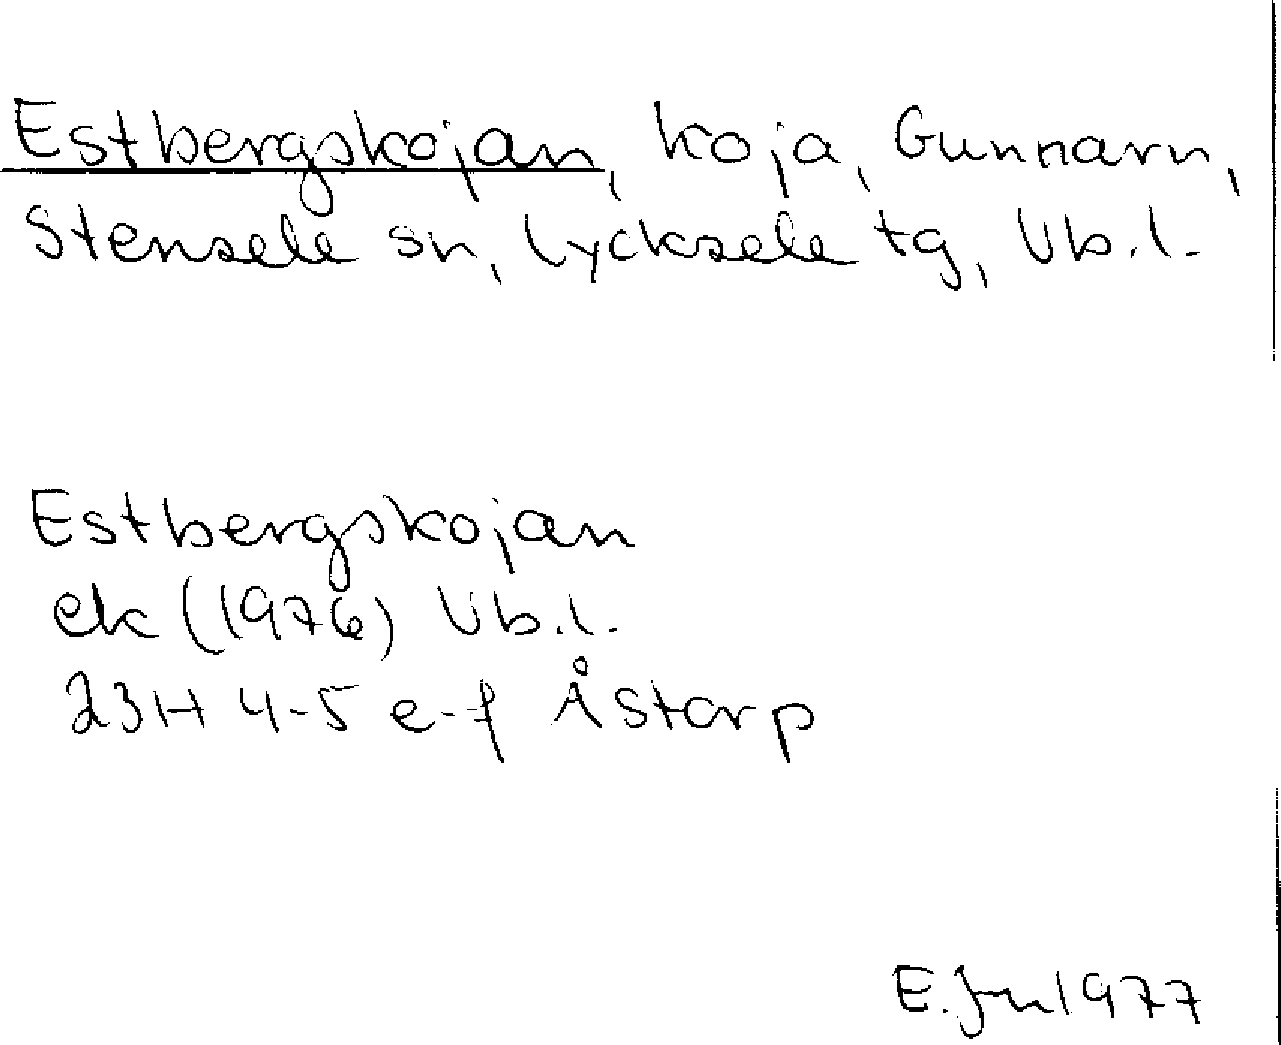 Estbergskojan, koja, Gunnarn,
Stensele sn, Lycksele tg, Vb.l.
Estbergskojan
ek (1976) Vb.l.
23H 4-5 e-f Åstorp
E. Jn 1977